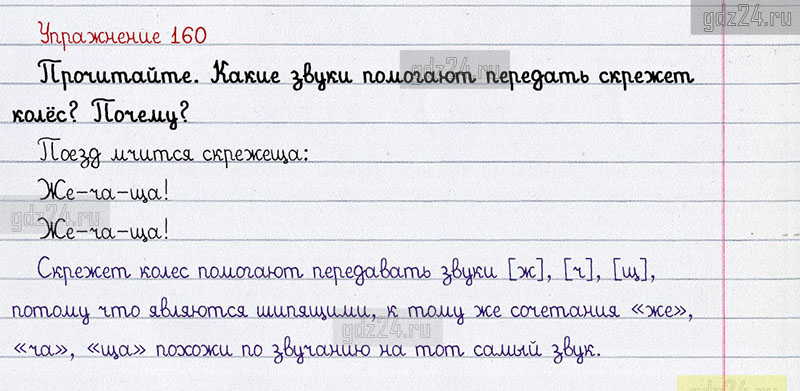 gdz24.ru
Упражнение 160
Прочитайте. Какие звуки помогают передать скрежет
gdz24.ru
колёс? Почему?
Поезд мчится скрежеща:
Же-ча-ща!
gdz24.ru
Же-ча-ща!
Скрежет колес помогают передавать звуки [ж], [ч], [щ],
потому что являются шипящими, к тому же сочетания «же»,
gdz24.ru
«ча», «ща» похожи по звучанию на тот самый звук.
gdz24.ru